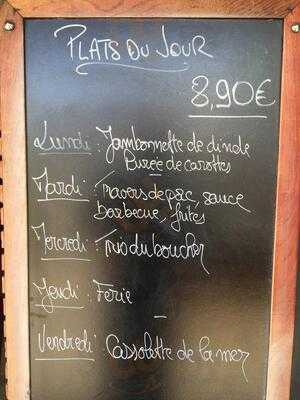 PLATS DU JOUR
8,90€
Lundi : Jambonnette de dinde
Purée de carottes
Mardi : Travers de porc, sauce
barbecue, frites
Mercredi : Trio du boucher
Jeudi : Ferie
Vendredi : Cassolette de la mer